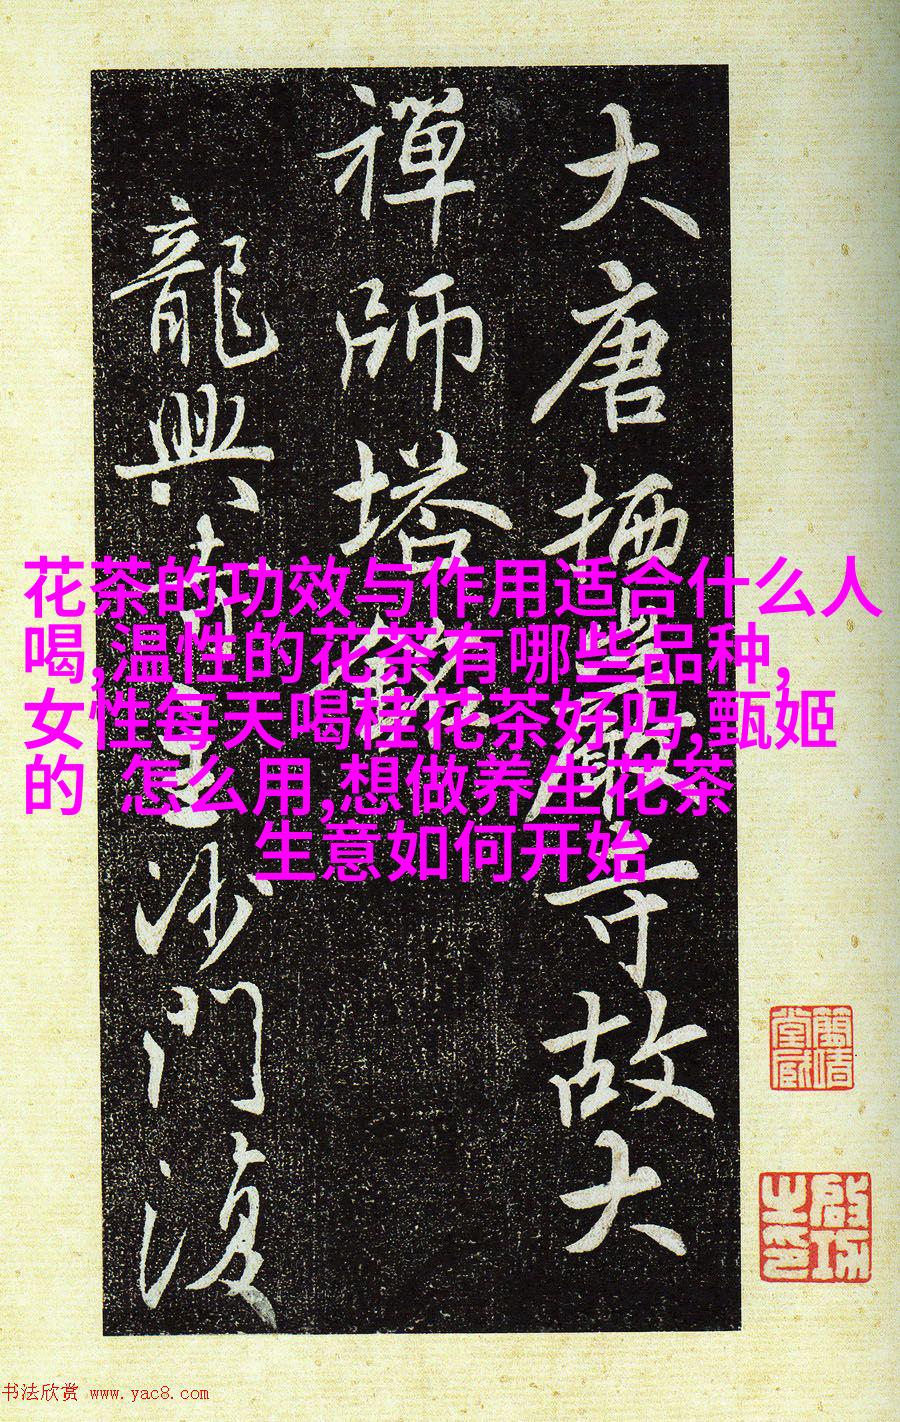 大唐栖霞寺故大
禪師塔銘
龍興寺主沙門復
花茶的功效与作用适合什么人
喝,温性的花茶有哪些品种,
女性每天喝桂花茶好吗,甄姬
的 怎么用,想做养生花茶
生意如何开始
蘭晴
堂藏
啟功
之印
书法欣赏 www.yac8.com